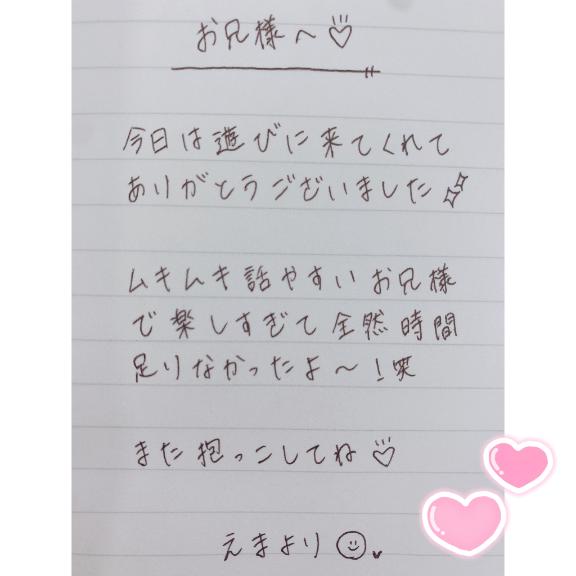 お兄様へ♡
今日は遊びに来てくれて
ありがとうございました
ムキムキ話やすいお兄様
で楽しすぎて全然時間
足りなかったよ〜！笑
また抱っこしてね♡
えまより